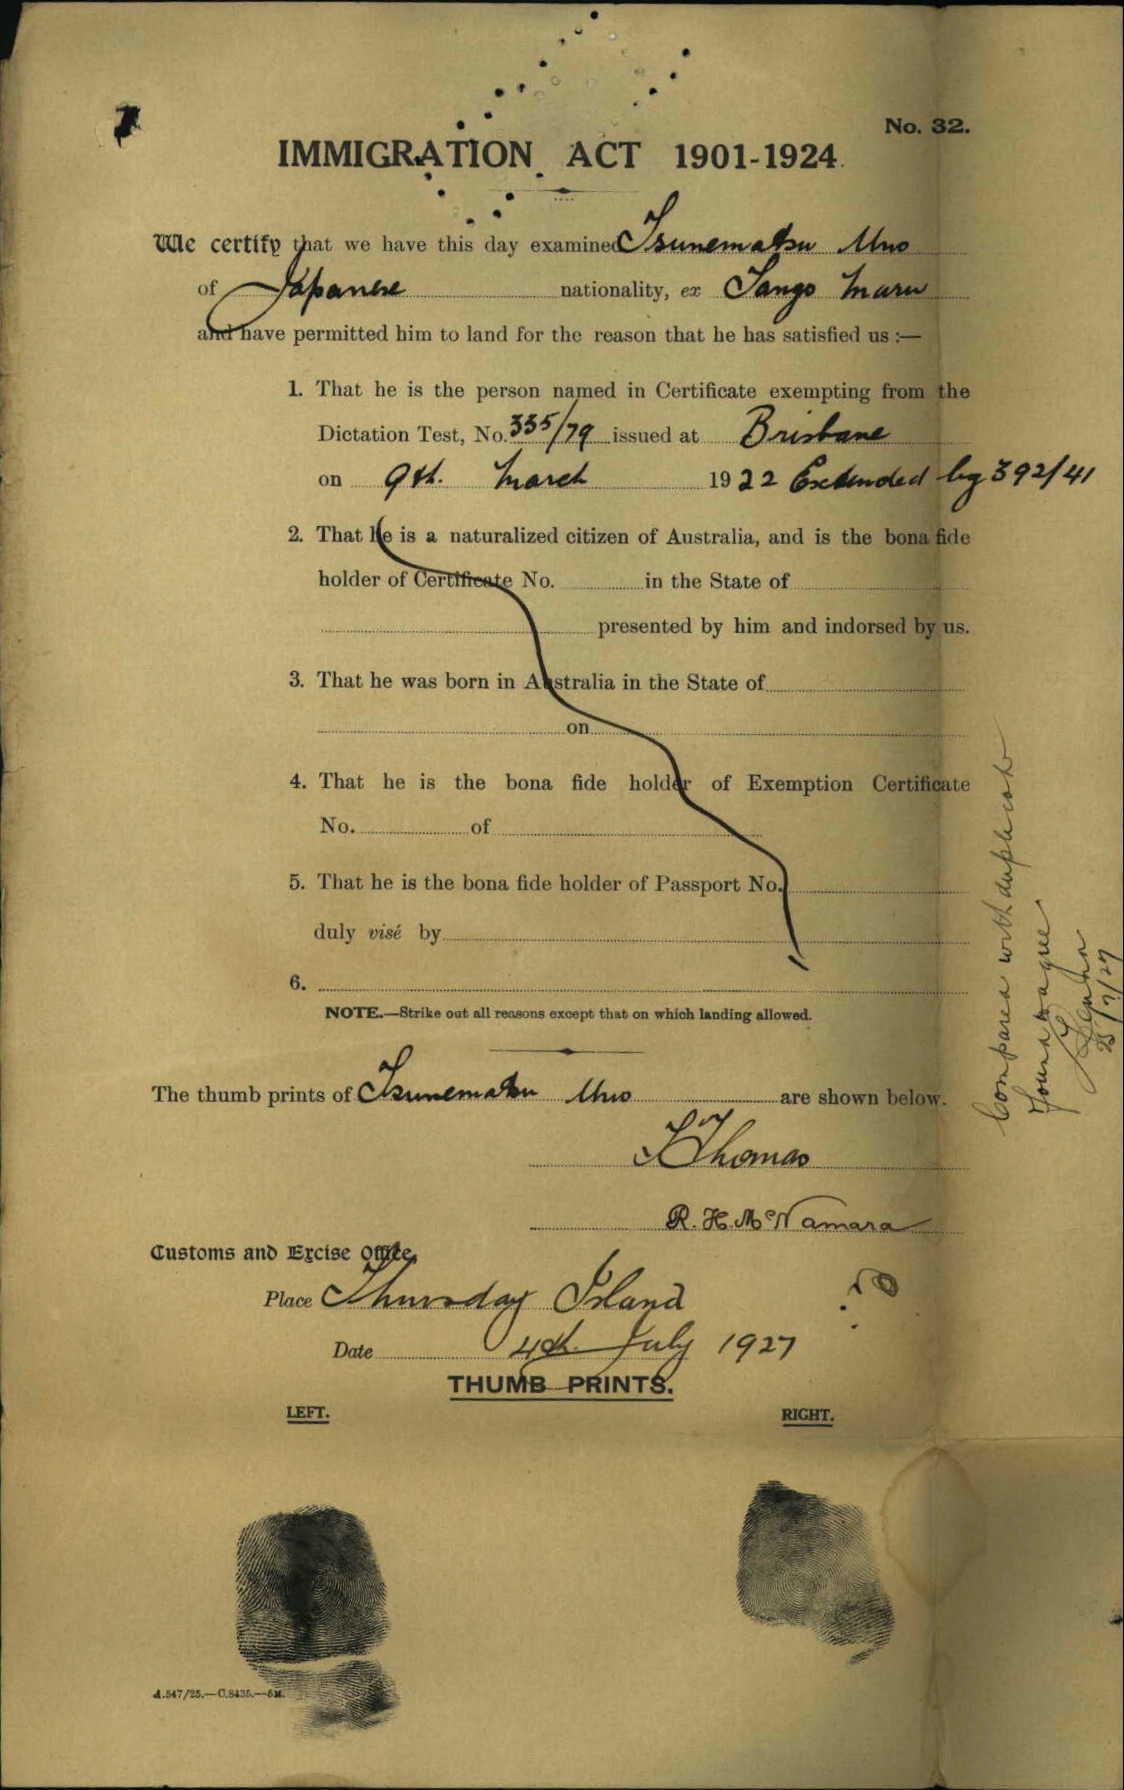 No. 32.
IMMIGRATION ACT 1901-1924.
We certify that we have this day examined Tsunematsu Uno
of Japanese nationality, ex Tango Maru
and have permitted him to land for the reason that he has satisfied us :—
1. That he is the person named in Certificate exempting from the
Dictation Test, No. 335/79 issued at Brisbane
on 9th. March 1922 Extended by 392/41
2. That he is a naturalized citizen of Australia, and is the bona fide
holder of Certificate No. in the State of
presented by him and indorsed by us.
3. That he was born in Australia in the State of
on
4. That he is the bona fide holder of Exemption Certificate
No. of
5. That he is the bona fide holder of Passport No.
duly visé by
6.
NOTE.—Strike out all reasons except that on which landing allowed.
The thumb prints of Tsunematsu Uno are shown below.
Thomas
R. H. McNamara
Customs and Excise Office,
Place Thursday Island
Date 4th July 1927
THUMB PRINTS.
LEFT. RIGHT.
A.547/25.—C.8435.—5M.
Compared with duplicate
found to agree